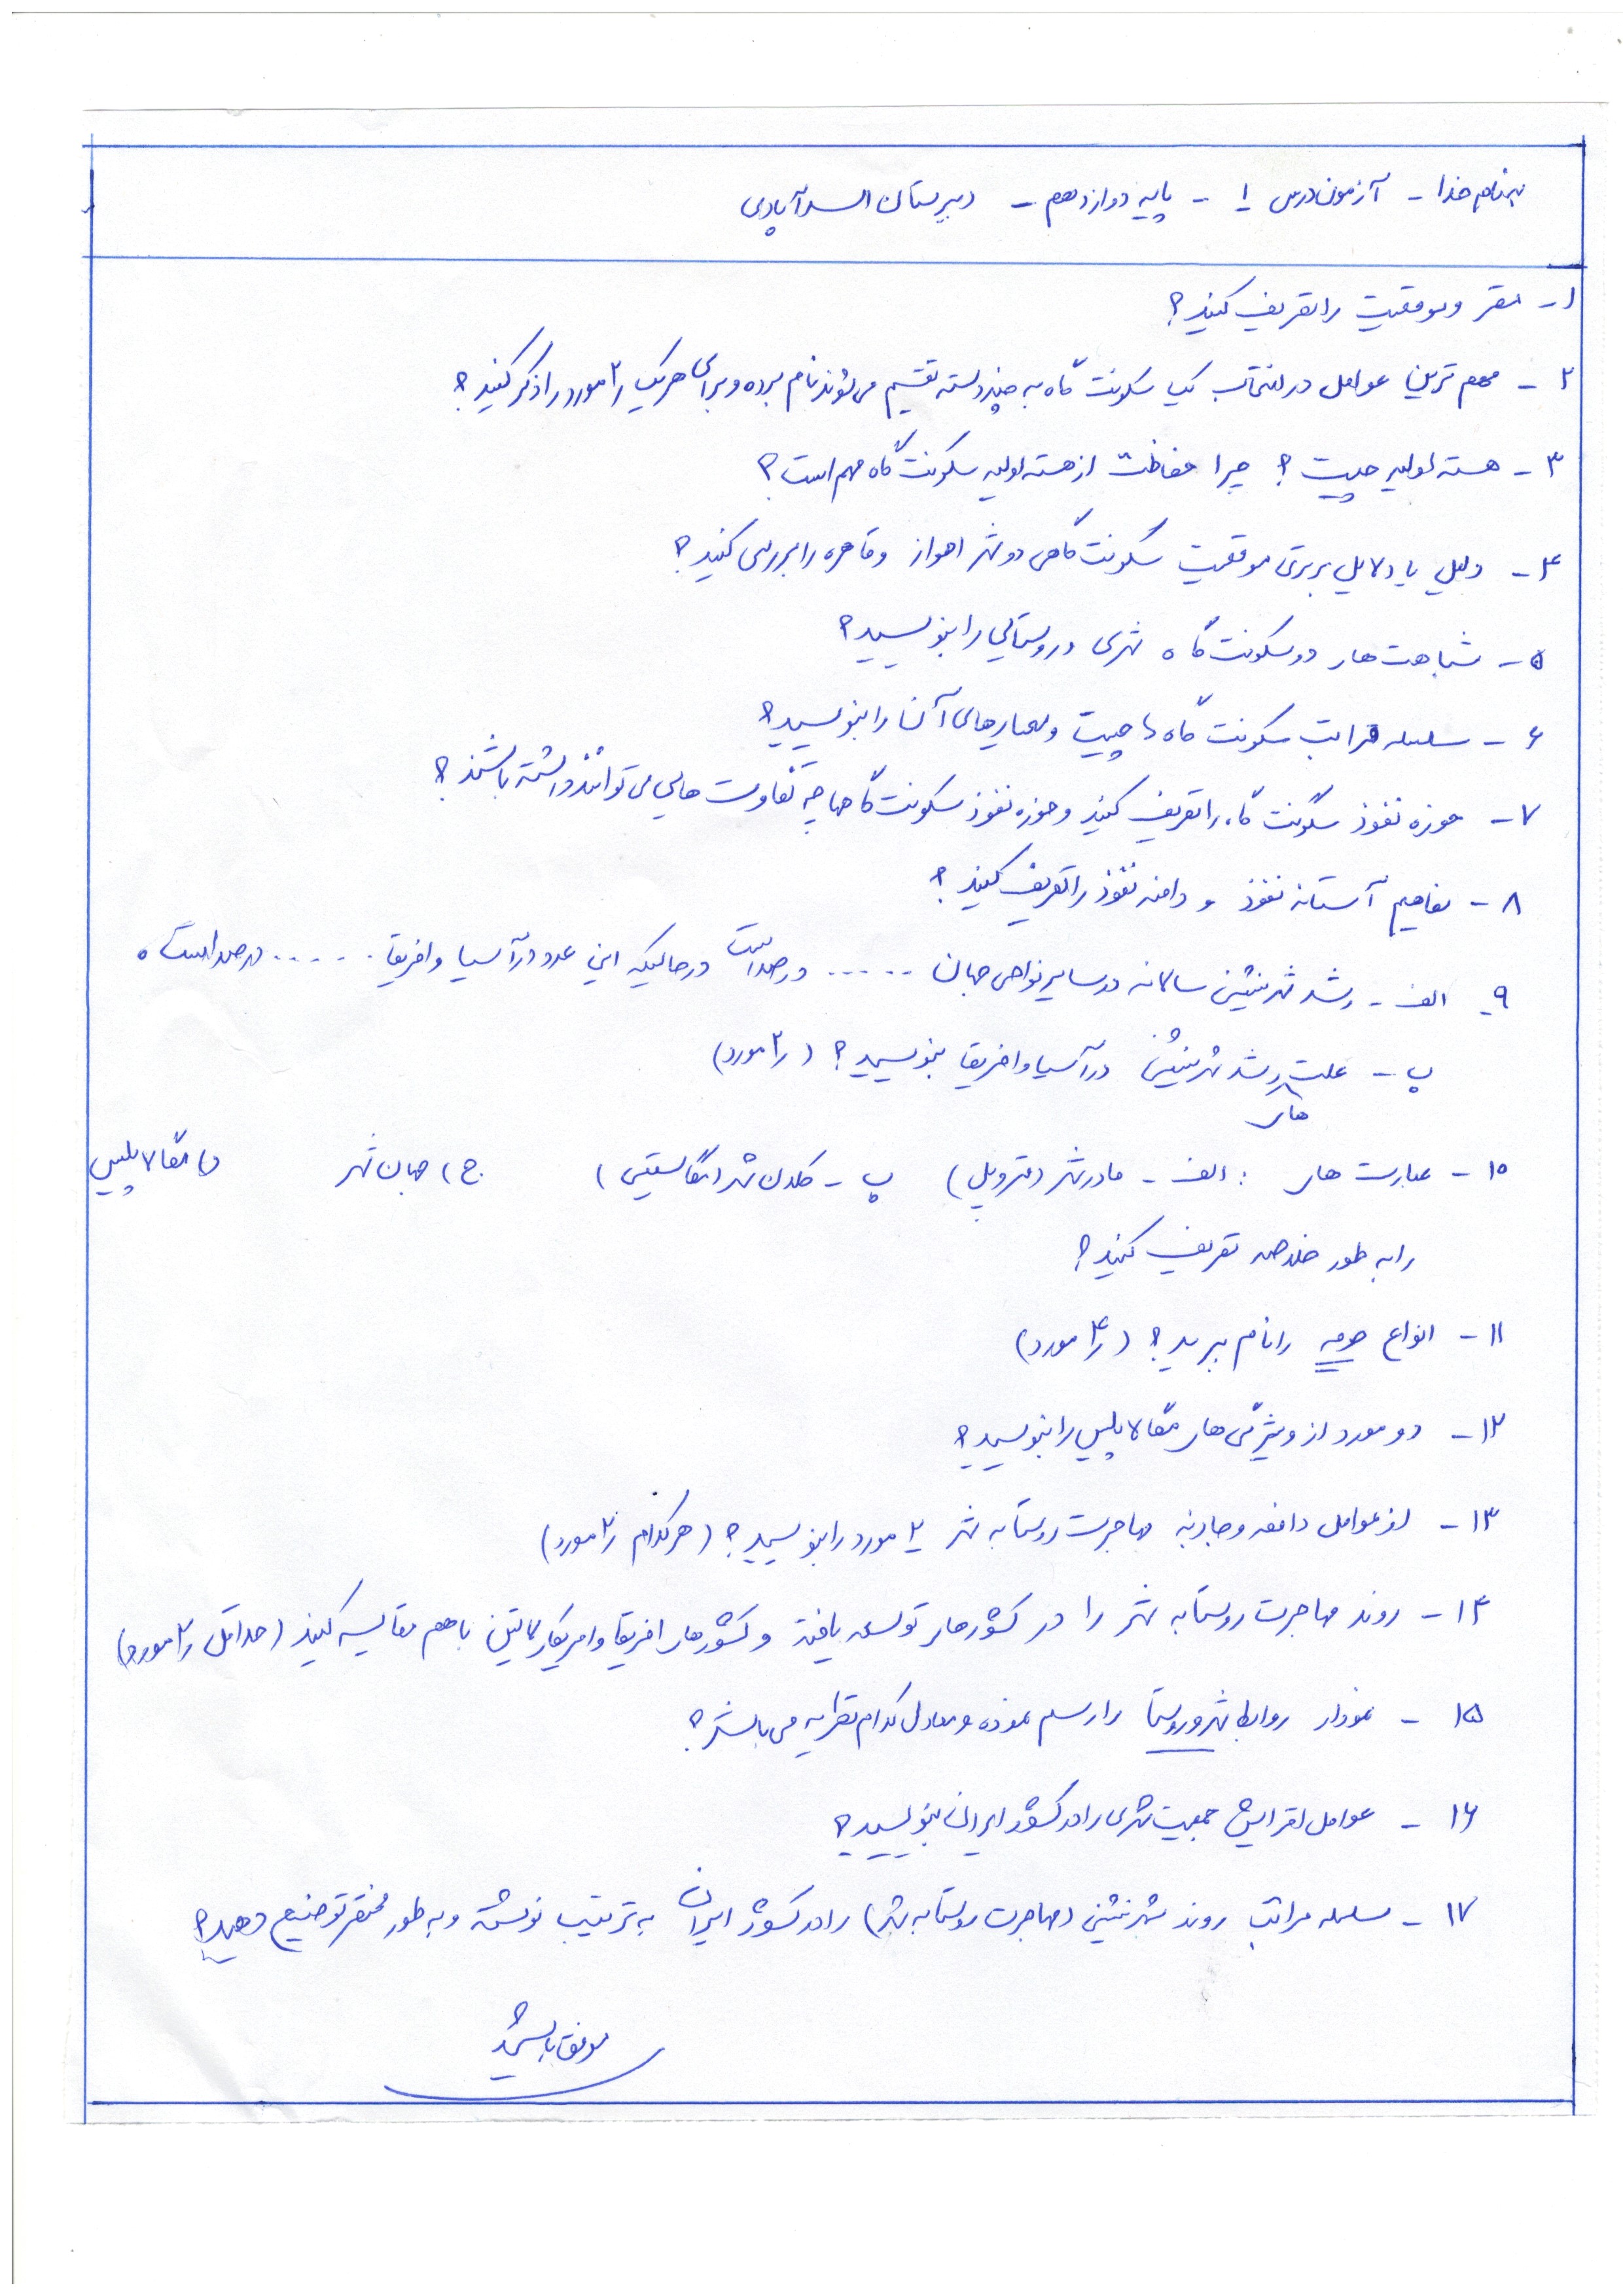 بنام خدا - آزمون درس ۱ - پایه دوازدهم - دبیرستان اسدآبادی
۱- مقر و موقعیت را تعریف کنید؟
۲- مهم ترین عوامل در انتخاب یک سکونت گاه به چند دسته تقسیم می شوند نام برده و برای هر یک ۲ مورد را ذکر کنید؟
۳- هسته اولیه چیست؟ چرا حفاظت از هسته اولیه سکونت گاه مهم است؟
۴- دلیل یا دلایل برتری موقعیت سکونت گاهی دو شهر اهواز و قاهره را بررسی کنید؟
۵- شباهت های دو سکونت گاه شهری و روستایی را بنویسید؟
۶- سلسله مراتب سکونت گاه ها چیست و معیارهای آن را بنویسید؟
۷- حوزه نفوذ سکونت گاه را تعریف کنید و حوزه نفوذ سکونت گاهها چه تفاوت هایی می توانند داشته باشند؟
۸- مفاهیم آستانه نفوذ و دامنه نفوذ را تعریف کنید؟
۹- الف - رشد شهرنشینی سالانه در سایر نواحی جهان ..... درصد است در حالیکه این عدد در آسیا و افریقا ...... درصد است.
ب - علت های رشد شهرنشینی در آسیا و افریقا بنویسید؟ (۲ مورد)
۱۰- عبارت های : الف - مادرشهر (متروپل) ب - کلان شهر (مگاسیتی) ج) جهان شهر د) مگالاپلیس
را به طور خلاصه تعریف کنید؟
۱۱- انواع حومه را نام ببرید؟ (۴ مورد)
۱۲- دو مورد از ویژگی های مگالاپلیس را بنویسید؟
۱۳- از عوامل دافعه و جاذبه مهاجرت روستا به شهر ۲ مورد را بنویسید؟ (هر کدام ۲ مورد)
۱۴- روند مهاجرت روستا به شهر را در کشورهای توسعه یافته و کشورهای افریقا و امریکای لاتین با هم مقایسه کنید (حداقل ۲ مورد)
۱۵- نمودار روابط شهر و روستا را رسم نموده و معادل کدام نظریه می باشد؟
۱۶- عوامل افزایش جمعیت شهری را در کشور ایران بنویسید؟
۱۷- سلسله مراتب روند شهرنشینی (مهاجرت روستا به شهر) را در کشور ایران به ترتیب نوشته و به طور مختصر توضیح دهید؟
موفق باشید